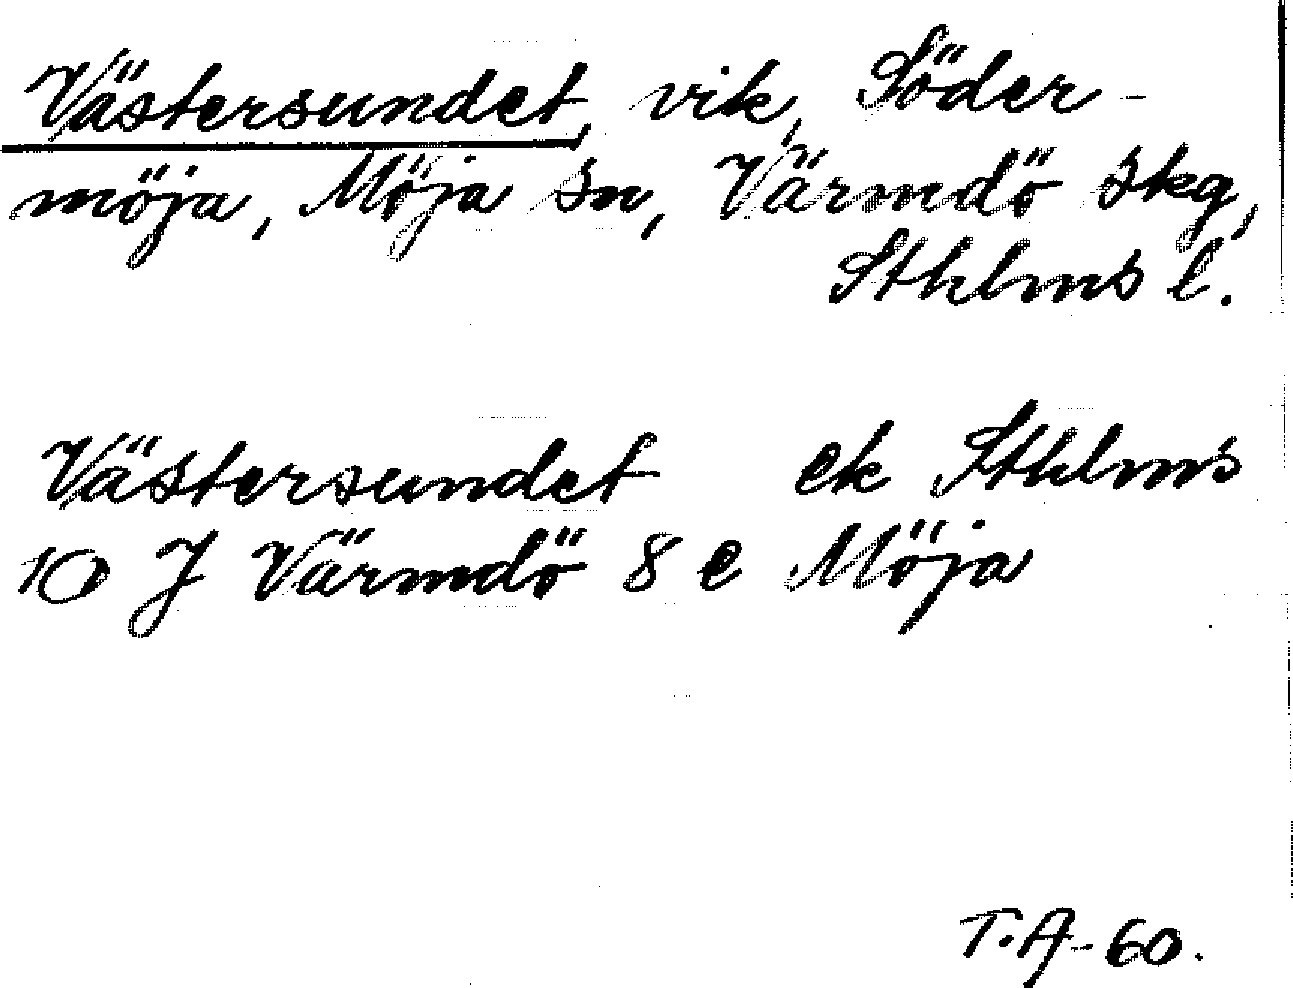 Västersundet, vik, Söder-
möja, Möja sn, Värmdö skg,
Sthlms l.
Västersundet ek Sthlms
10 J Värmdö 8 e Möja
T.A-60.